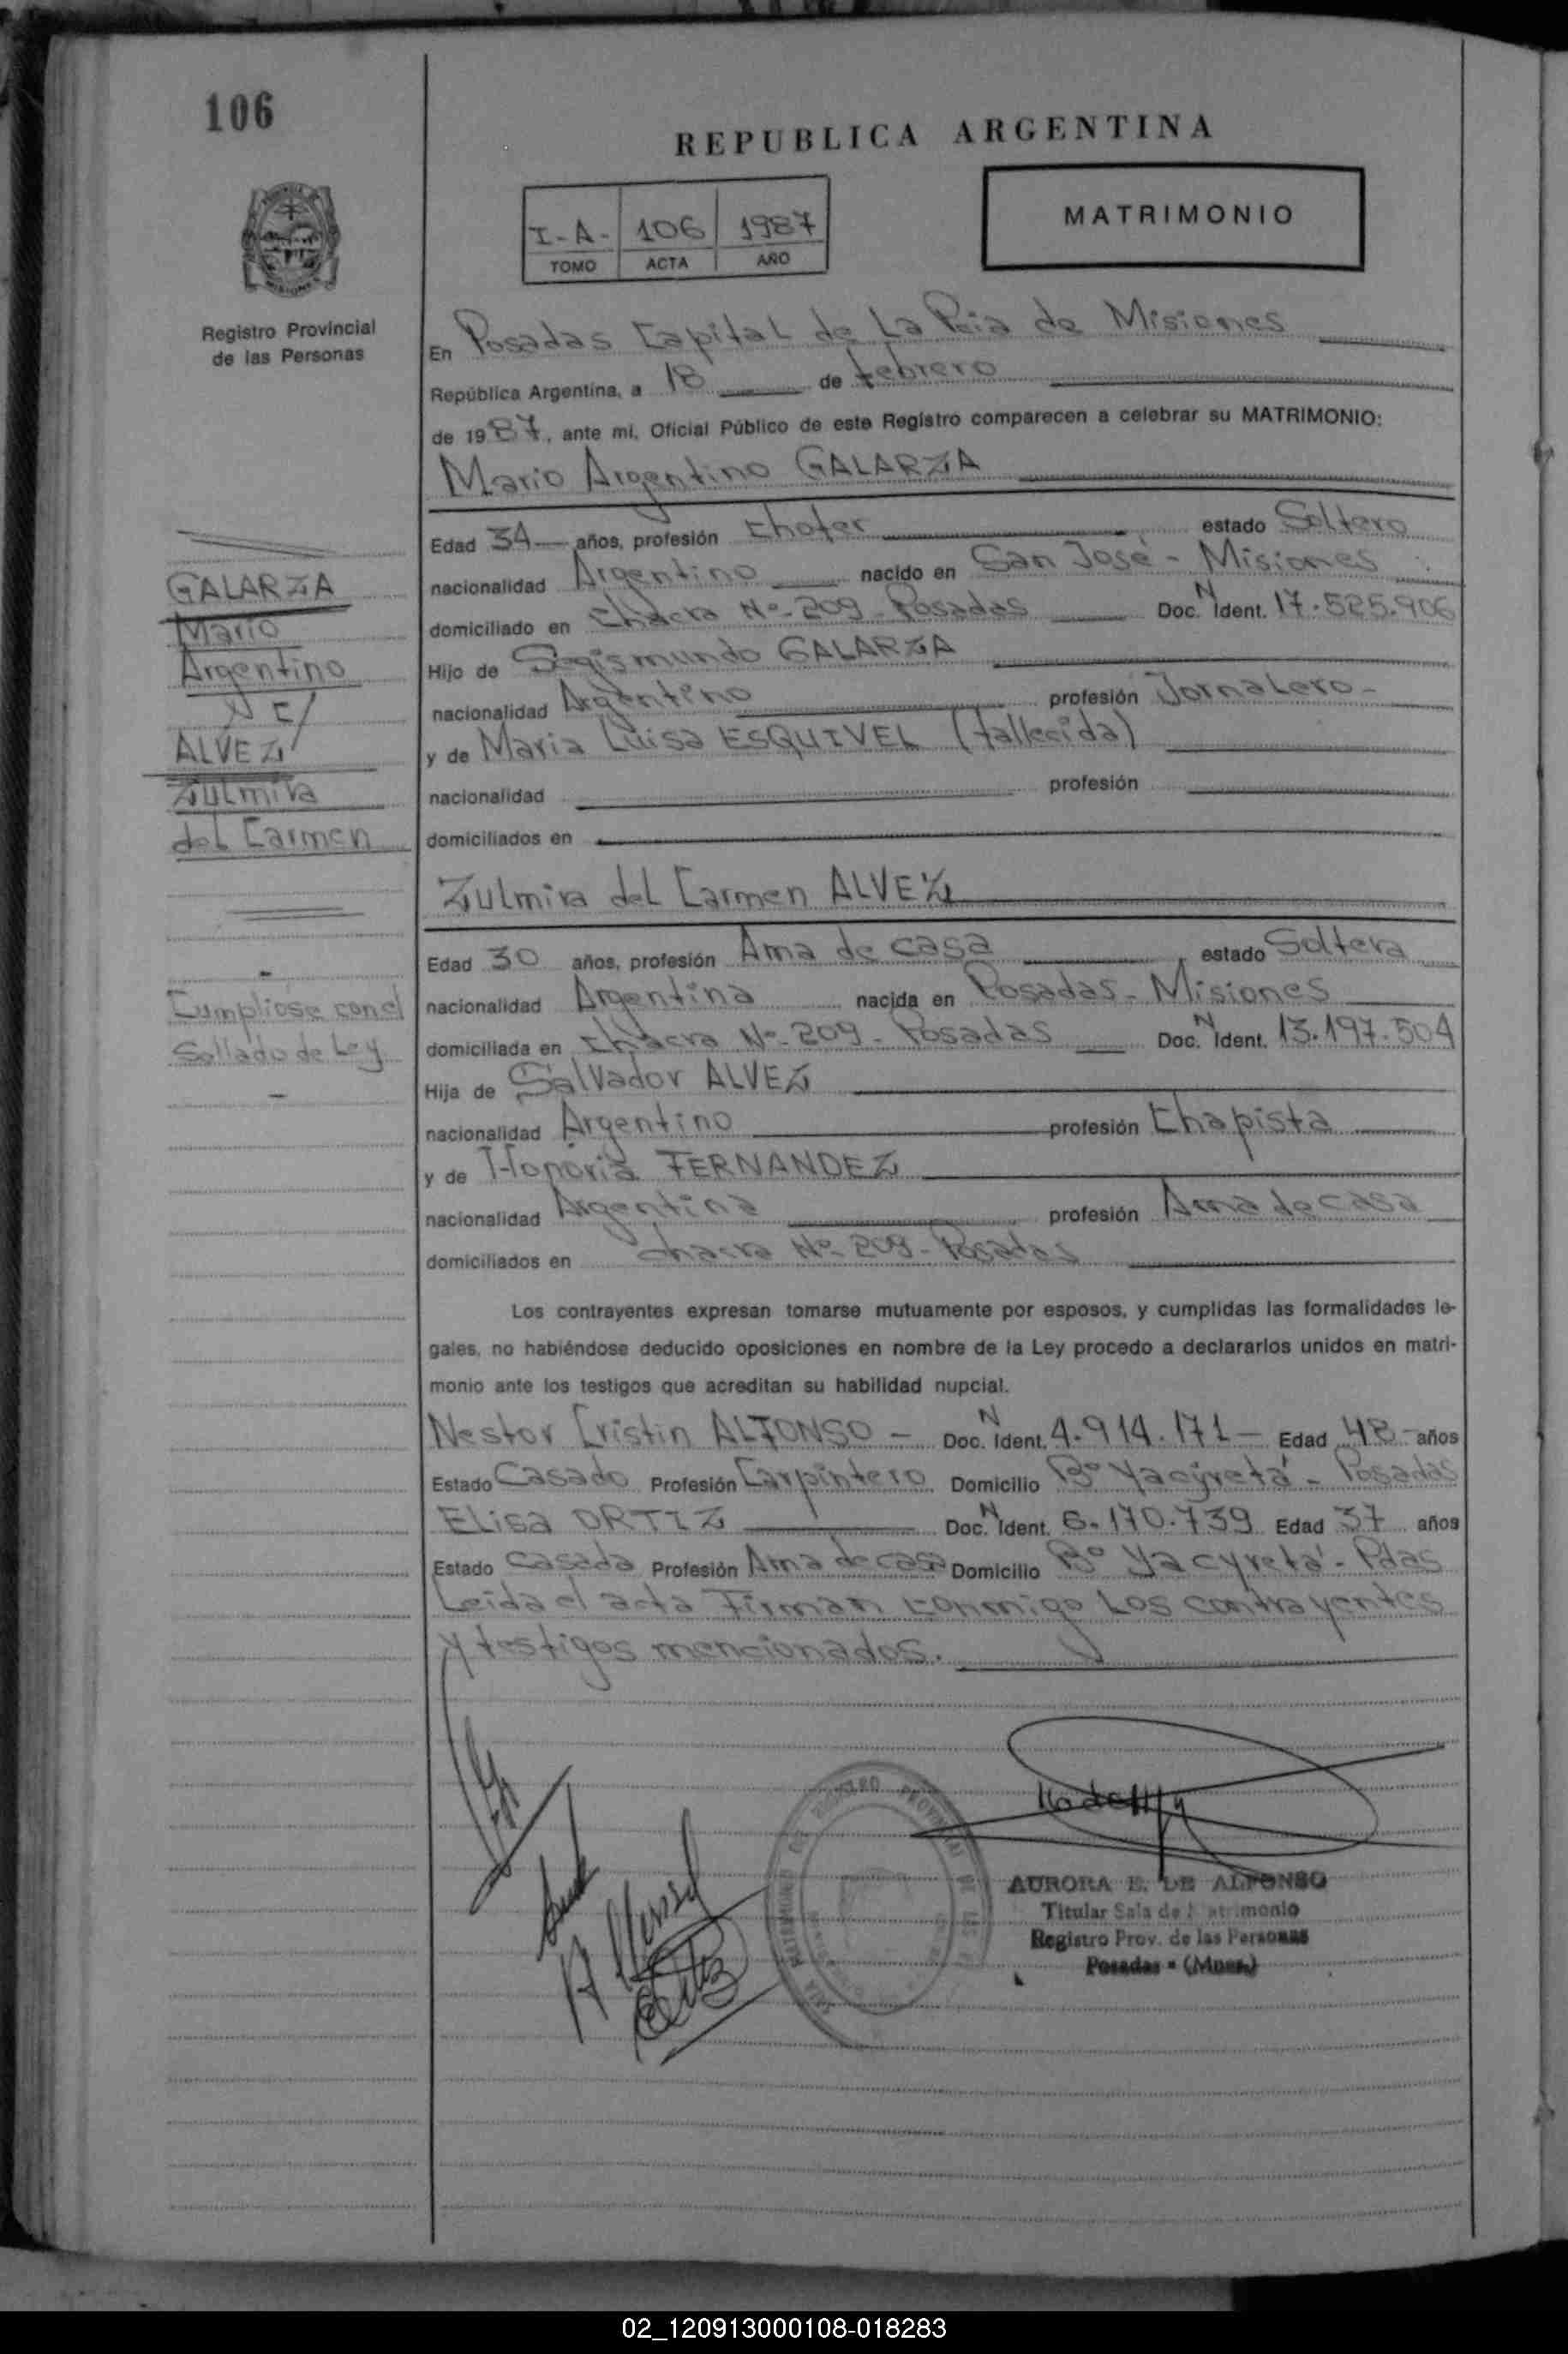 106
REPUBLICA ARGENTINA
MATRIMONIO
I-A- 106 1987
TOMO ACTA AÑO
Registro Provincial
de las Personas
En Posadas Capital de La Pcia de Misiones
República Argentina, a 18 de febrero
de 1987, ante mi, Oficial Público de este Registro comparecen a celebrar su MATRIMONIO:
Mario Argentino GALARZA
Edad 34 años, profesión Chofer estado Soltero
nacionalidad Argentino nacido en San José - Misiones
domiciliado en Chacra Nº 209 - Posadas Doc. N Ident. 17.525.906
Hijo de Segismundo GALARZA
nacionalidad Argentino profesión Jornalero -
y de Maria Luisa ESQUIVEL (fallecida)
nacionalidad profesión
domiciliados en
GALARZA
Mario
Argentino
c/
ALVEZ
Zulmira
del Carmen
Zulmira del Carmen ALVEZ
Edad 30 años, profesión Ama de casa estado Soltera
nacionalidad Argentina nacida en Posadas - Misiones
domiciliada en Chacra Nº 209 - Posadas Doc. N Ident. 13.197.504
Hija de Salvador ALVEZ
nacionalidad Argentino profesión Chapista
y de Honoria FERNANDEZ
nacionalidad Argentina profesión Ama de casa
domiciliados en chacra Nº 209 - Posadas
Cumpliose con el
Sellado de Ley
Los contrayentes expresan tomarse mutuamente por esposos, y cumplidas las formalidades le-
gales, no habiéndose deducido oposiciones en nombre de la Ley procedo a declararlos unidos en matri-
monio ante los testigos que acreditan su habilidad nupcial.
Nestor Cristin ALFONSO - Doc. N Ident. 4.914.171 - Edad 48 - años
Estado Casado Profesión Carpintero Domicilio Bº Yacyretá - Posadas
Elisa ORTIZ Doc. N Ident. 6.170.739 Edad 37 años
Estado Casada Profesión Ama de casa Domicilio Bº Yacyretá - Pdas
Leida el acta Firman conmigo Los contrayentes
y testigos mencionados.
AURORA E. DE ALFONSO
Titular Sala de Matrimonio
Registro Prov. de las Personas
Posadas - (Mnes.)
02_120913000108-018283